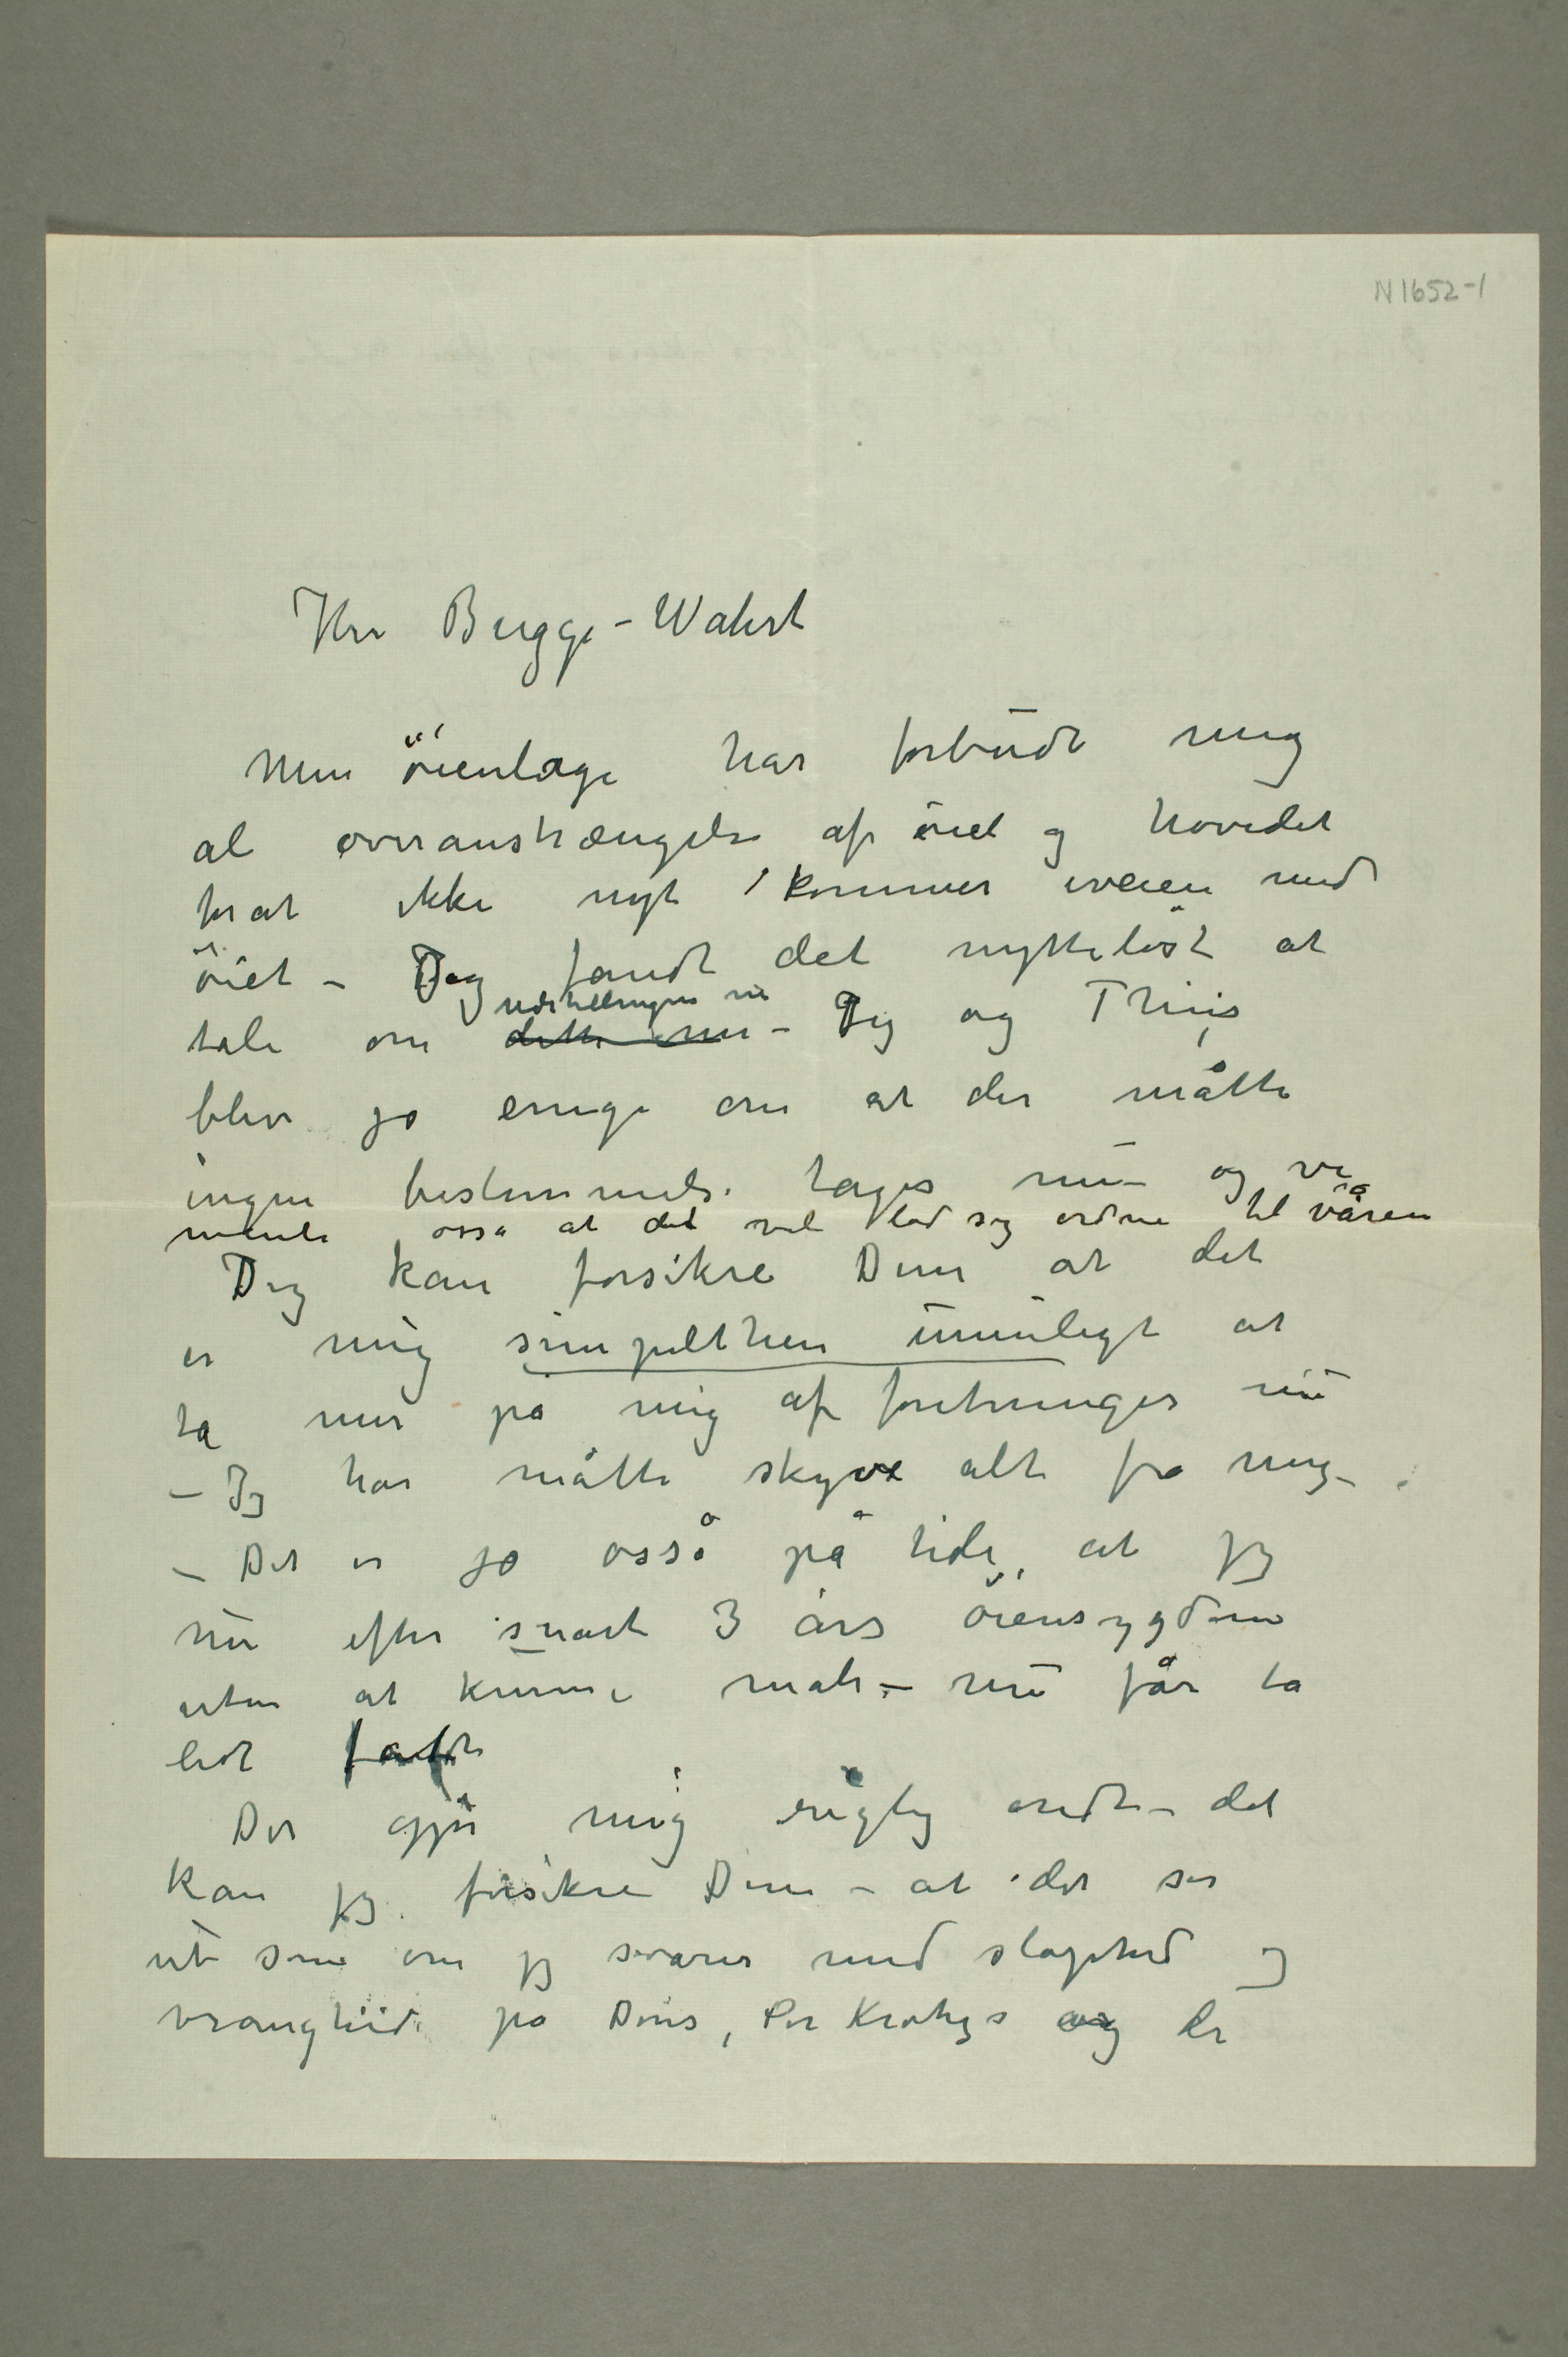 N 1652-1
Hr Bugge-Wahst
Min øienlæge har forbudt mig
al overanstrængelse af øiet og hovedet
forat ikke nyt kommer iveien med
øiet – Jeg fandt det nytteløst at
tale om ~~dette nu~~ udstillingen nu – Jeg og Thiis
blev jo enige om at der måtte
ingen bestemmelse tages nu – og vi
mente osså at det vel lod sig ordne til våren
Jeg kan forsikre Dem at det
er mig simpelthen umuligt at
ta mer på mig af foretninger nu
– Jeg har måtte skyve alt fra mig –
– Det er jo osså på tide, at jeg
nu efter snart 3 års øiensygdom
uten at kunne male – nu får ta
lidt fatdt
Det gjør mig rigtig ondt – det
kan jeg forsikre Dem – at det ser
ut som om jeg svarer med slaphed og
vranghed på Deres, Per Krohgs og Dr